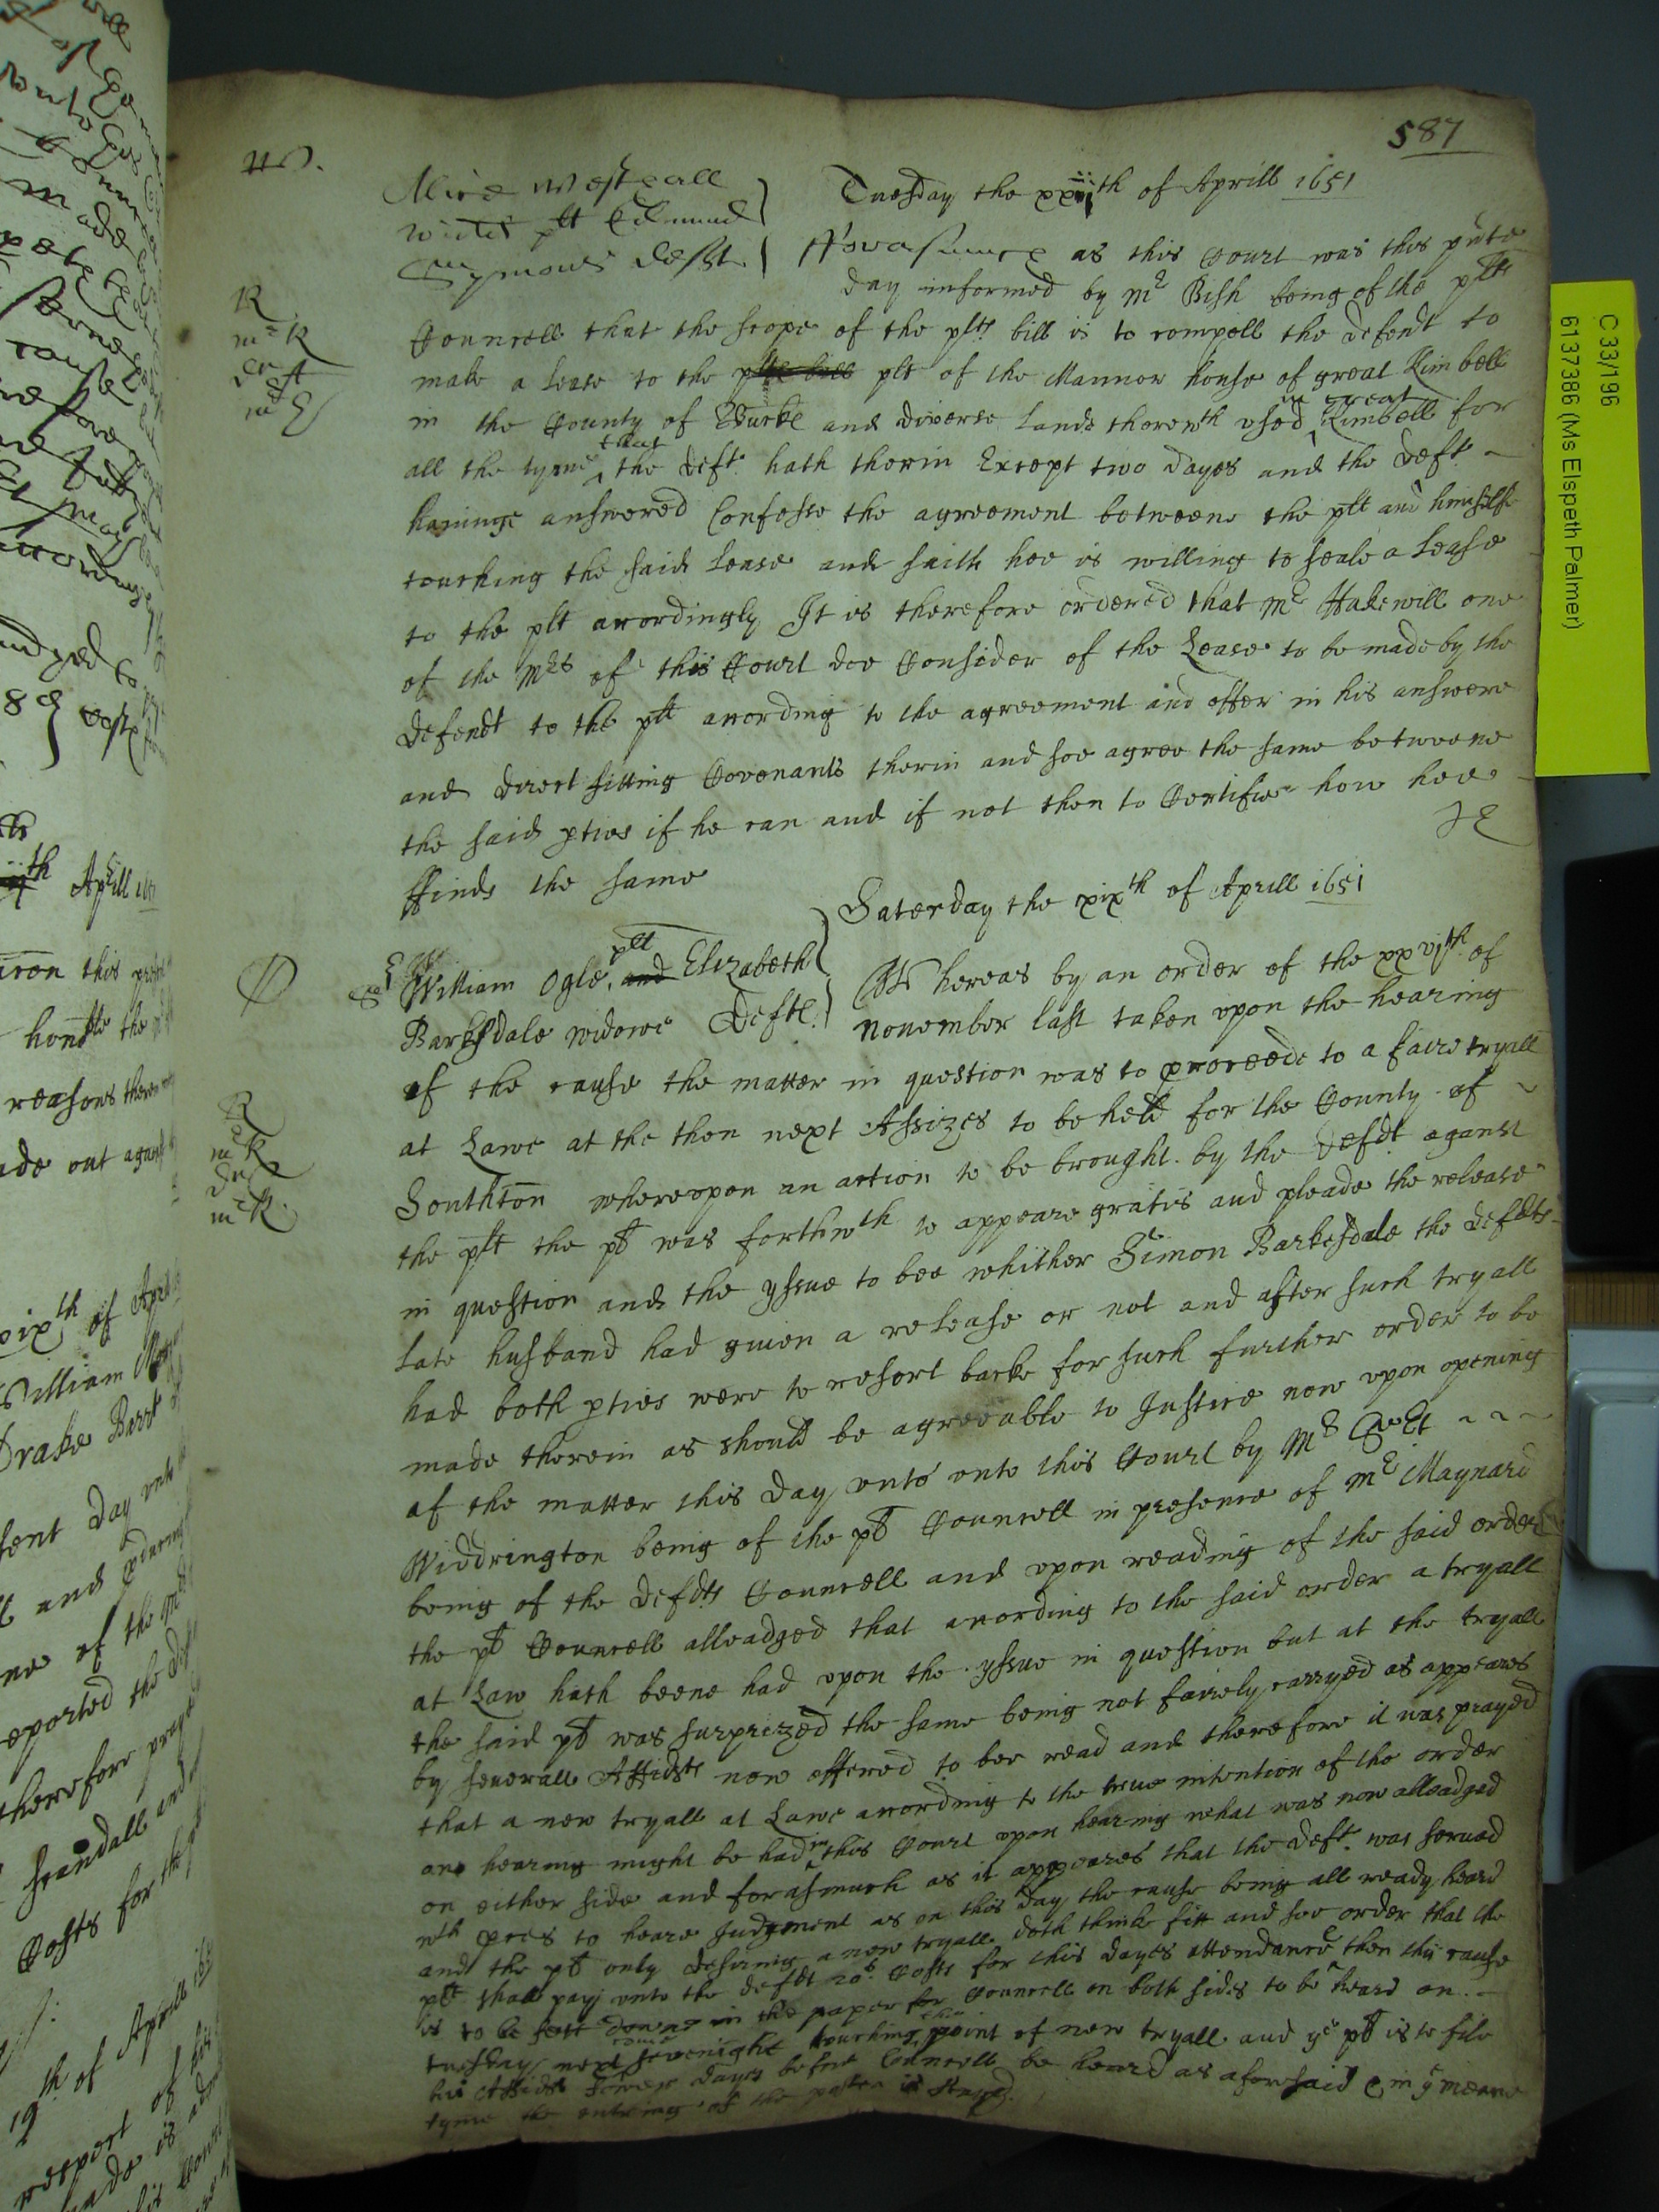 587
W.
Alice Westcall
widdˢ plt Edmund
Symons Defft.
Tuesday the xxiith of Aprill 1651
Fforasmuch as this Court was this pnte
day informed by Mr Bish being of the plts
Councell that the scope of the plts bill is to compell the defendt to
R
mr R
make a Lease to the plts bill plt of the Mannor house of great Kimbell
in the County of Bucke and diverse Lands therewth used in great Kimbell for
all the tyme that the deft hath therin Except two dayes and the deft
havinge answered Confesse the agreement betweene the plt and himselfe
touching the said Lease and saith hee is willing to seale a Lease
to the plt accordingly It is therefore ordered that Mr Hakewill one
of the Mrs of this Court doe Consider of the Lease to be made by the
defendt to the plt according to the agreement and offer in his answere
and direct fitting Covenants therin and soe agree the same betweene
the said pties if he can and if not then to Certifie how hee
ffinds the same
Saterday the xixth of Aprill 1651
William Ogle plt and Elizabeth
Barksdale widowe Deft
Whereas by an order of the xxvjth of
November last taken upon the hearing
of the cause the matter in question was to proceede to a faire tryall
at Lawe at the then next Assizes to be held for the County of
R
mr R
mr R.
Southton whereupon an action to be brought by the defdt against
the plt the pt was forthwth to appeare gratis and pleade the release
in question and the yssue to bee whither Simon Barkesdale the defdts
late husband had given a release or not and after such tryall
had both pties were to resort backe for such further order to be
made therein as should be agreeable to Justice now upon opening
of the matter this day unto unto this Court by Mr Serjt
Widdrington being of the pt Councell in presence of Mr Maynard
being of the Defdts Councell and upon reading of the said order
the pt Councell alleadged that according to the said order a tryall
at Law hath beene had upon the yssue in question but at the tryall
the said pt was surprized the same being not fairely carryed as appeares
by severall Affidts now offered to bee read and therefore it was prayed
that a new tryall at Lawe according to the true intention of the order
on hearing might be had in this Court upon hearing what was now alleadged
on either side and forasmuch as it appeares that the deft was served
wth pces to heare Judgment as on this day the cause being all ready heard
and the pt only desiring a new tryall doth thinke fitt and soe order that the
plt shall pay unto the defdt 20s Costs for this dayes attendance then this cause
is to be sett downe in the paper for Councell on both sides to be heard on
tuesday next come sevenight touching the point of new tryall and ye pt is to file
his Affidts fower dayes before Councell be heard as aforesaid & in ye meane
tyme the entring of the postea is stayed.
C 33/196
6137386 (Ms Elspeth Palmer)